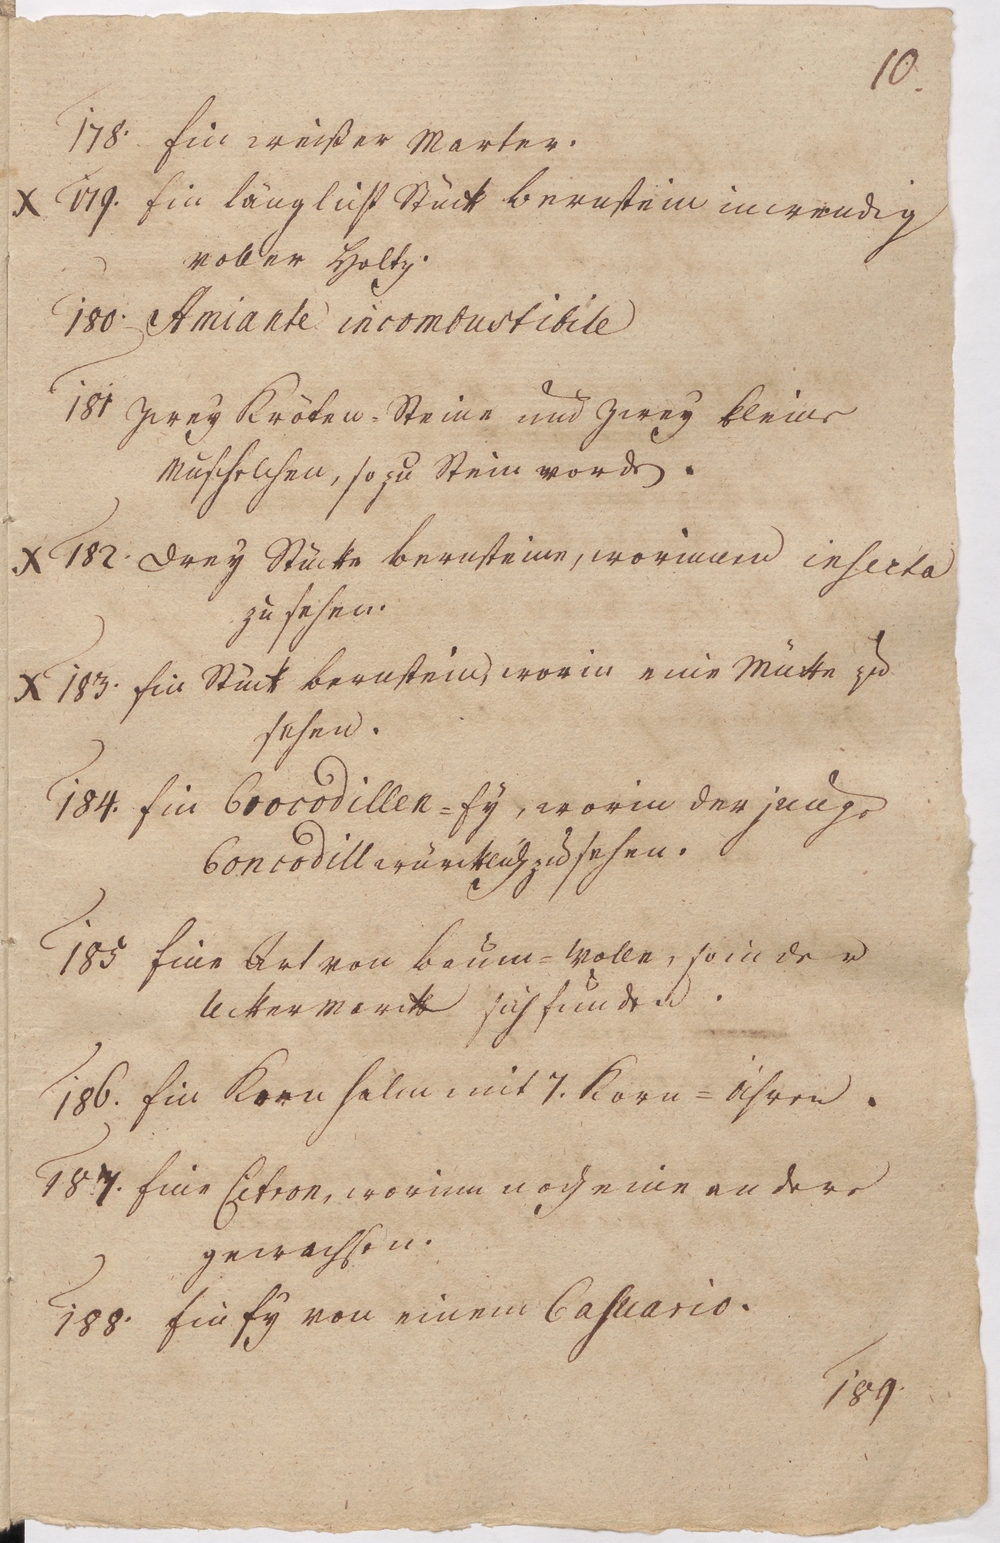 10.
178. Ein weißer Marter.
X 179. Ein länglicht Stück bernstein inwendig
voller Holtz.
180. Amiante incombustibile
181 Zwey Kröten=Steine und Zwey kleine
Muschelchen, so zu Stein worden.
X 182. Drey Stücke bernsteine, worinnen insecta
zu sehen.
X 183. Ein Stück bernstein, worin eine Mücke zu
sehen.
184. Ein Crocodillen=Ey, worin der junge
Concodill würcklich zu sehen.
185 Eine Art von baum=Wolle, so in der
Ucker Marck sich funden.
186. Ein Korn halm mit 7. Korn=Ähren.
187. Eine Citron, worinn noch eine andere
gewachsen.
188. Ein Ey von einem Casuario.
189.